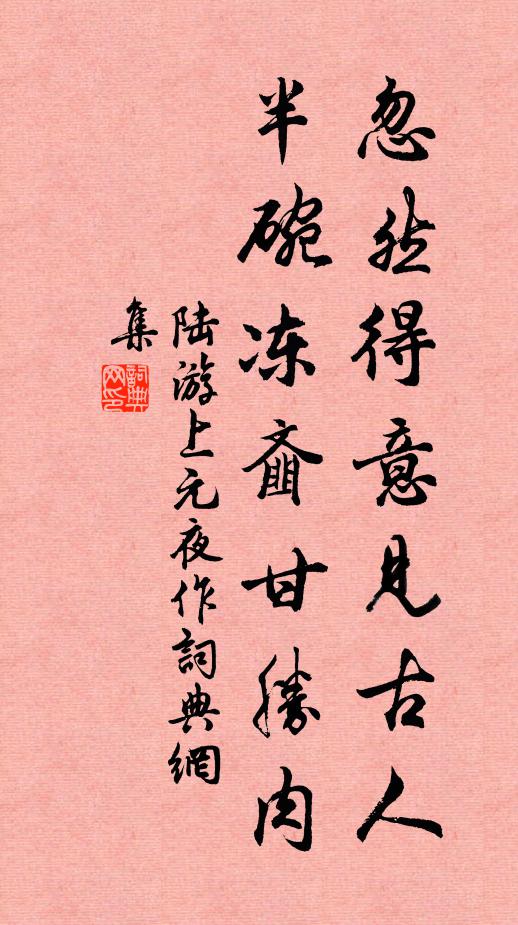 忽然得意見古人
半碗冻齑甘勝肉
陆游上元夜作詞典網
集
詞典
网印